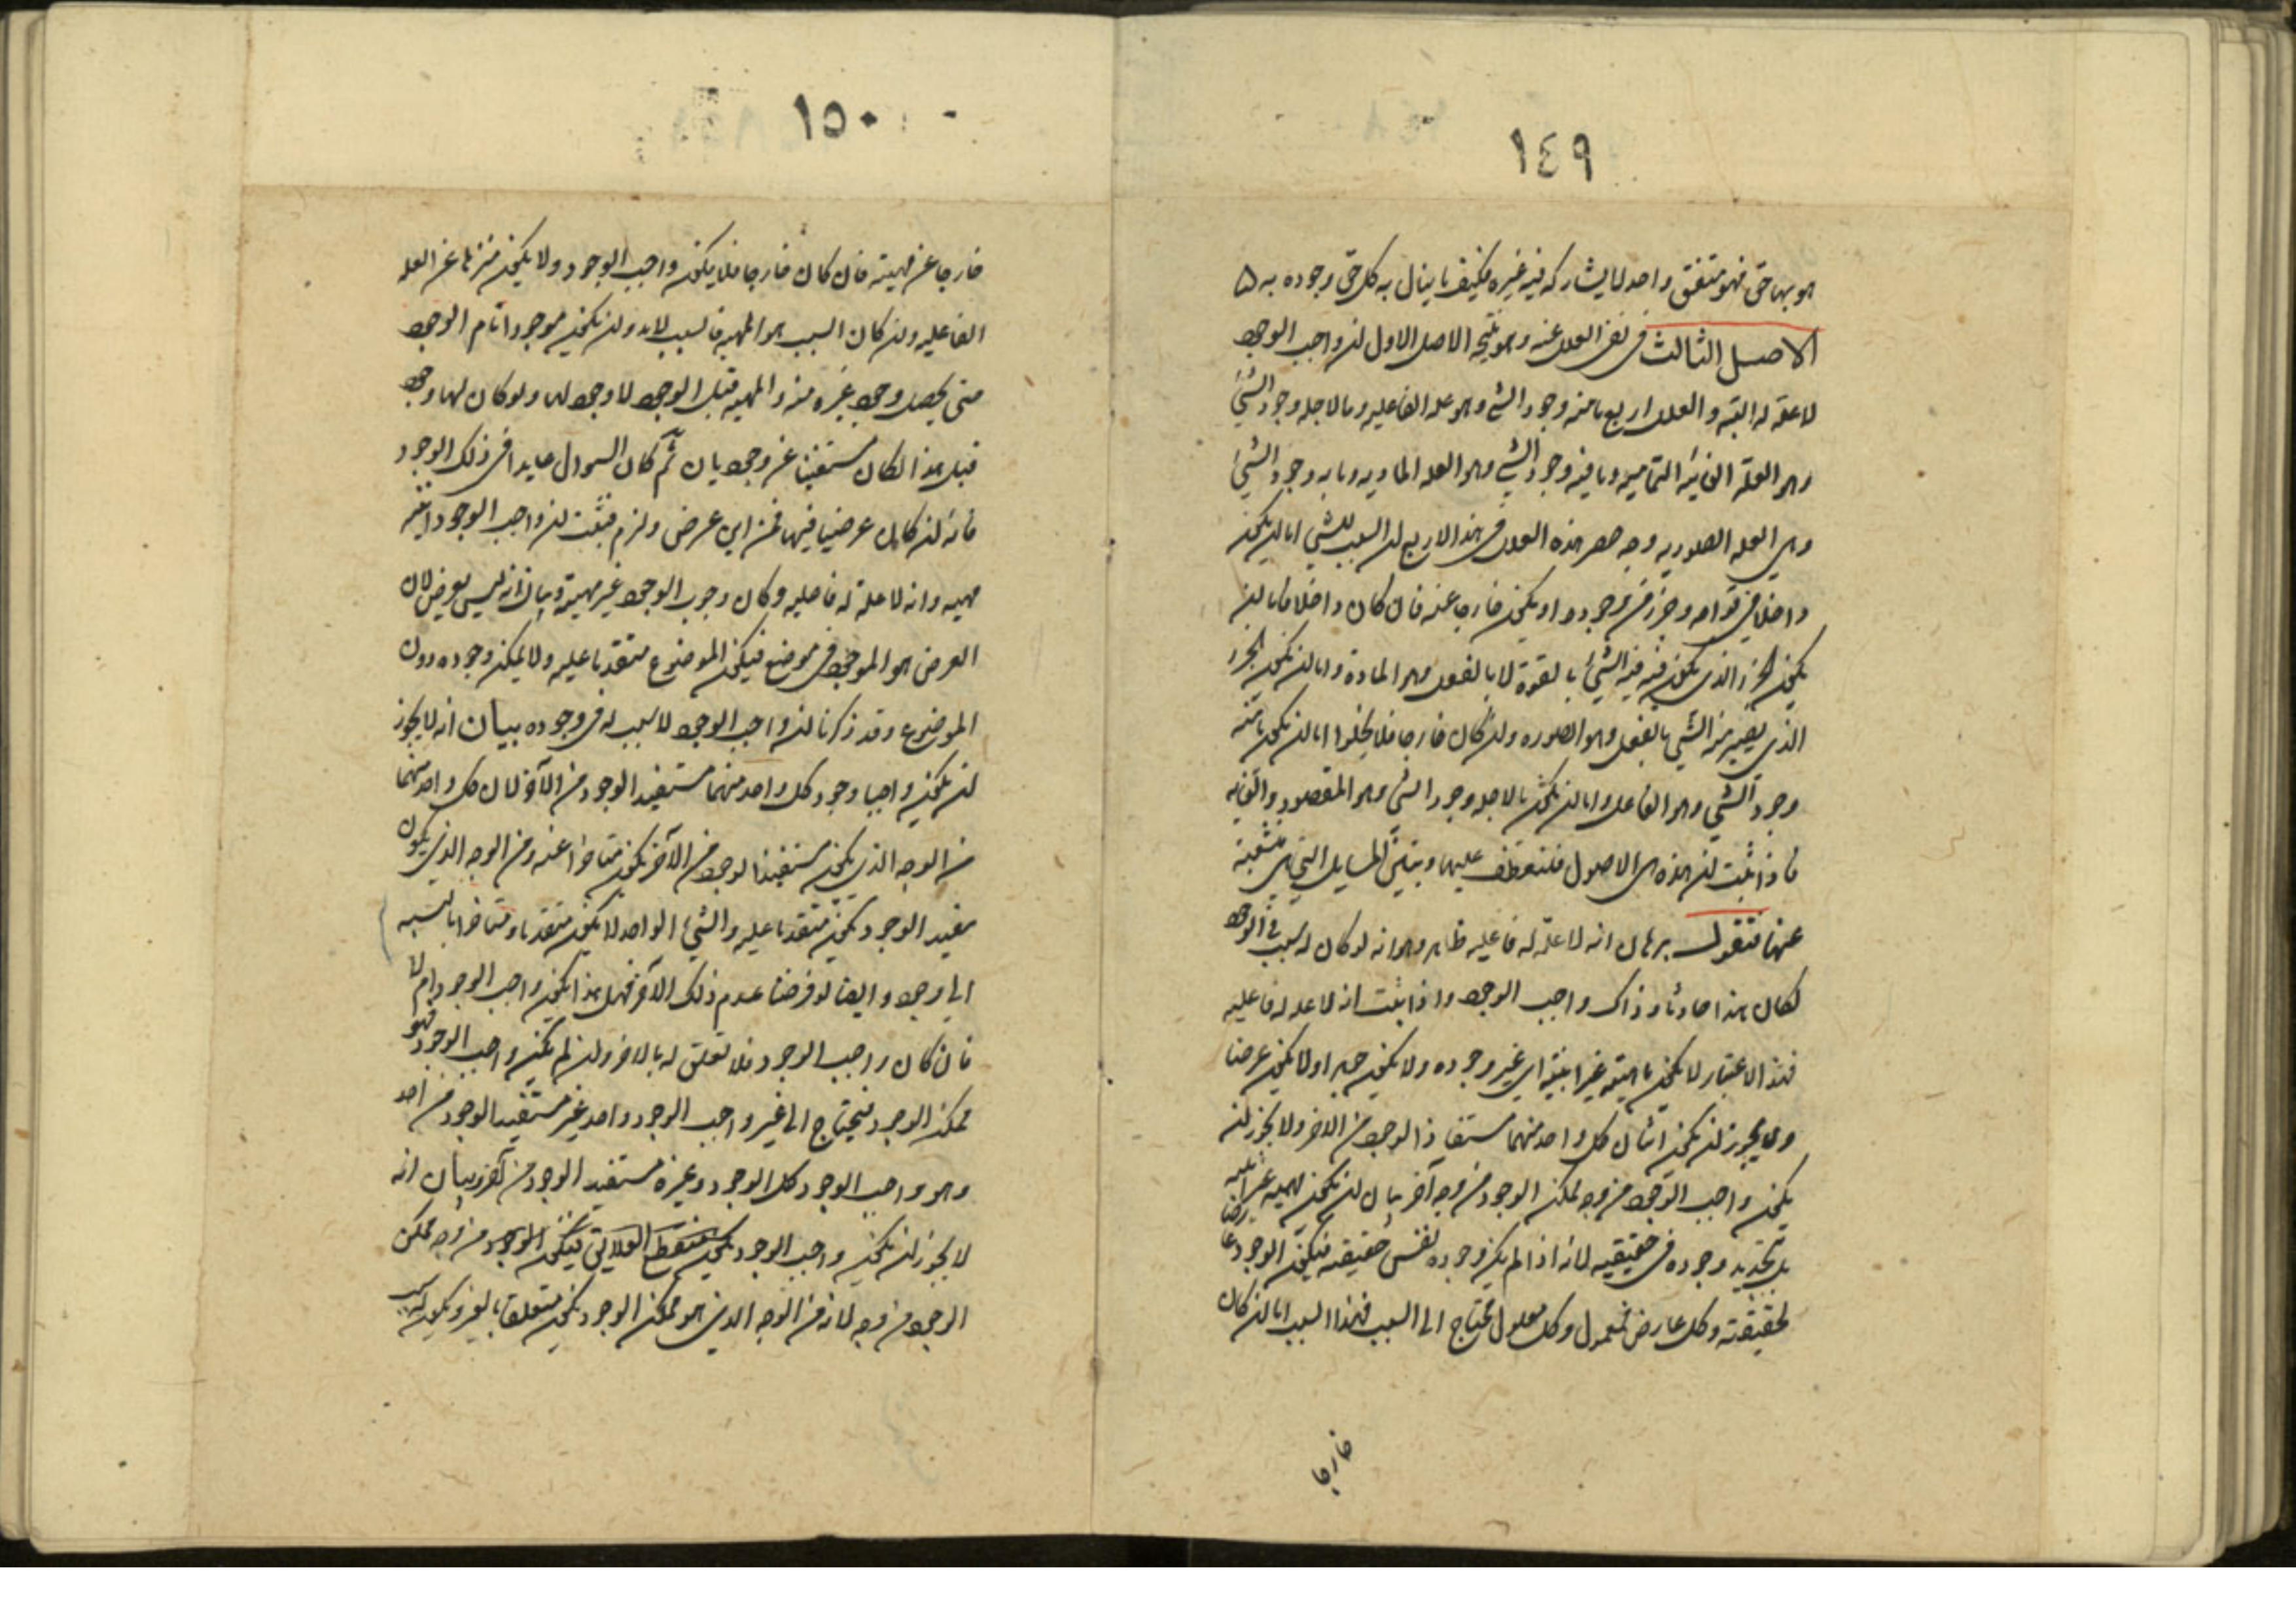 ١٤٩
هو بها حق فهو متفق واحد لا يشاركه فيه غيره فكيف ما ينال به كل حق وجوده به
الاصل الثالث فى نفى العلل عنه وهو نتيجة الاصل الاول ان واجب الوجود
لا علة له البتة والعلل اربع ما منه وجود الشئ وهو علة الفاعليه وما لاجله وجود الشئ
وهو العلة الغائية التماميه وما فيه وجود الشئ وهو العله الماديه وما به وجود الشئ
وهى العله الصوريه وجه حصر هذه العلل فى هذا الاربع ان السبب للشئ اما ان يكون
داخلا فى قوامه وجزء من وجوده او يكون خارجا عنه فان كان داخلا فاما ان
يكون الجزء الذى يكون فيه الشئ بالقوة لا بالفعل وهو المادة واما ان يكون الجزء
الذى يصير منه الشئ بالفعل وهو الصوره وان كان خارجا فلا يخلوا اما ان يكون ما منه
وجود الشئ وهو الفاعل واما ان يكون ما لاجله وجود الشئ وهو المقصود والغايه
فاذا ثبت ان هذه هى الاصول فلنعطف عليها ونبين المسايل التى هى متشعبة
عنها فنقول برهان انه لا علة له فاعليه ظاهر وهو انه لو كان له سبب فى الوجود
لكان هذا حادثا وذاك واجب الوجود واذا ثبت انه لا علة له فاعليه
فبهذا الاعتبار لا يكون ماهيته غير انيته اى غير وجوده ولا يكون جوهرا ولا يكون عرضا
ولا يجوز ان يكون اثنان كل واحد منهما مستفاد الوجود من الاخر ولا يجوز ان
يكون واجب الوجود من وجه ممكن الوجود من وجه آخر بيان ان يكون مهيته غير انيته
بل يتحد وجوده فى حقيقته لانه اذا لم يكن وجوده نفس حقيقته فيكون الوجود عارضا
لحقيقته وكل عارض فمعلول وكل معلول محتاج الى السبب فهذا السبب اما ان كان
خارجا
١٥٠
خارجا عن مهيته فان كان خارجا فلا يكون واجب الوجود ولا يكون منزها عن العله
الفاعليه وان كان السبب هو المهيه فالسبب لا بد وان يكون موجودا تام الوجود
حتى يحصل وجود غيره منه والمهيه قبل الوجود لا وجود لها ولو كان لها وجود
قبل هذا لكان مستغنيا عن وجود ثان ثم كان السوال عايدا فى ذلك الوجود
فانه ان كان عرضيا فيها فمن اين عرض ولزم فثبت ان واجب الوجود انيته
مهيته وانه لا علة له فاعليه وكان وجوب الوجود غير مهيته وبيان انه ليس بعرض لان
العرض هو الموجود فى موضع فيكون الموضوع متقدما عليه ولا يمكن وجوده دون
الموضوع وقد ذكرنا ان واجب الوجود لا سبب له فى وجوده بيان انه لا يجوز
ان يكون واجبا وجود كل واحد منهما مستفيد الوجود من الآخر لان كل واحد منهما
من الوجه الذى يكون مستفيد الوجود من الآخر يكون متاخرا عنه ومن الوجه الذى يكون
مفيد الوجود يكون متقدما عليه والشئ الواحد لا يكون متقدما ومتاخرا بالنسبه
الى وجوده وايضا لو فرضنا عدم ذلك الآخر فهل هذا يكون واجب الوجود ام لا
فان كان واجب الوجود فلا تعلق له بالاخر وان لم يكن واجب الوجود فهو
ممكن الوجود فيحتاج الى غير واجب الوجود واحد غير مستفيد الوجود من احد
وهو واجب الوجود كل الوجود وغيره مستفيد الوجود من آخر وبيان انه
لا يجوز ان يكون واجب الوجود يكون منقطع العلايق فيكون الوجود من وجه ممكن
الوجود من وجه لانه من الوجه الذى هو ممكن الوجود يكون متعلقا بالغير ويكون له سبب